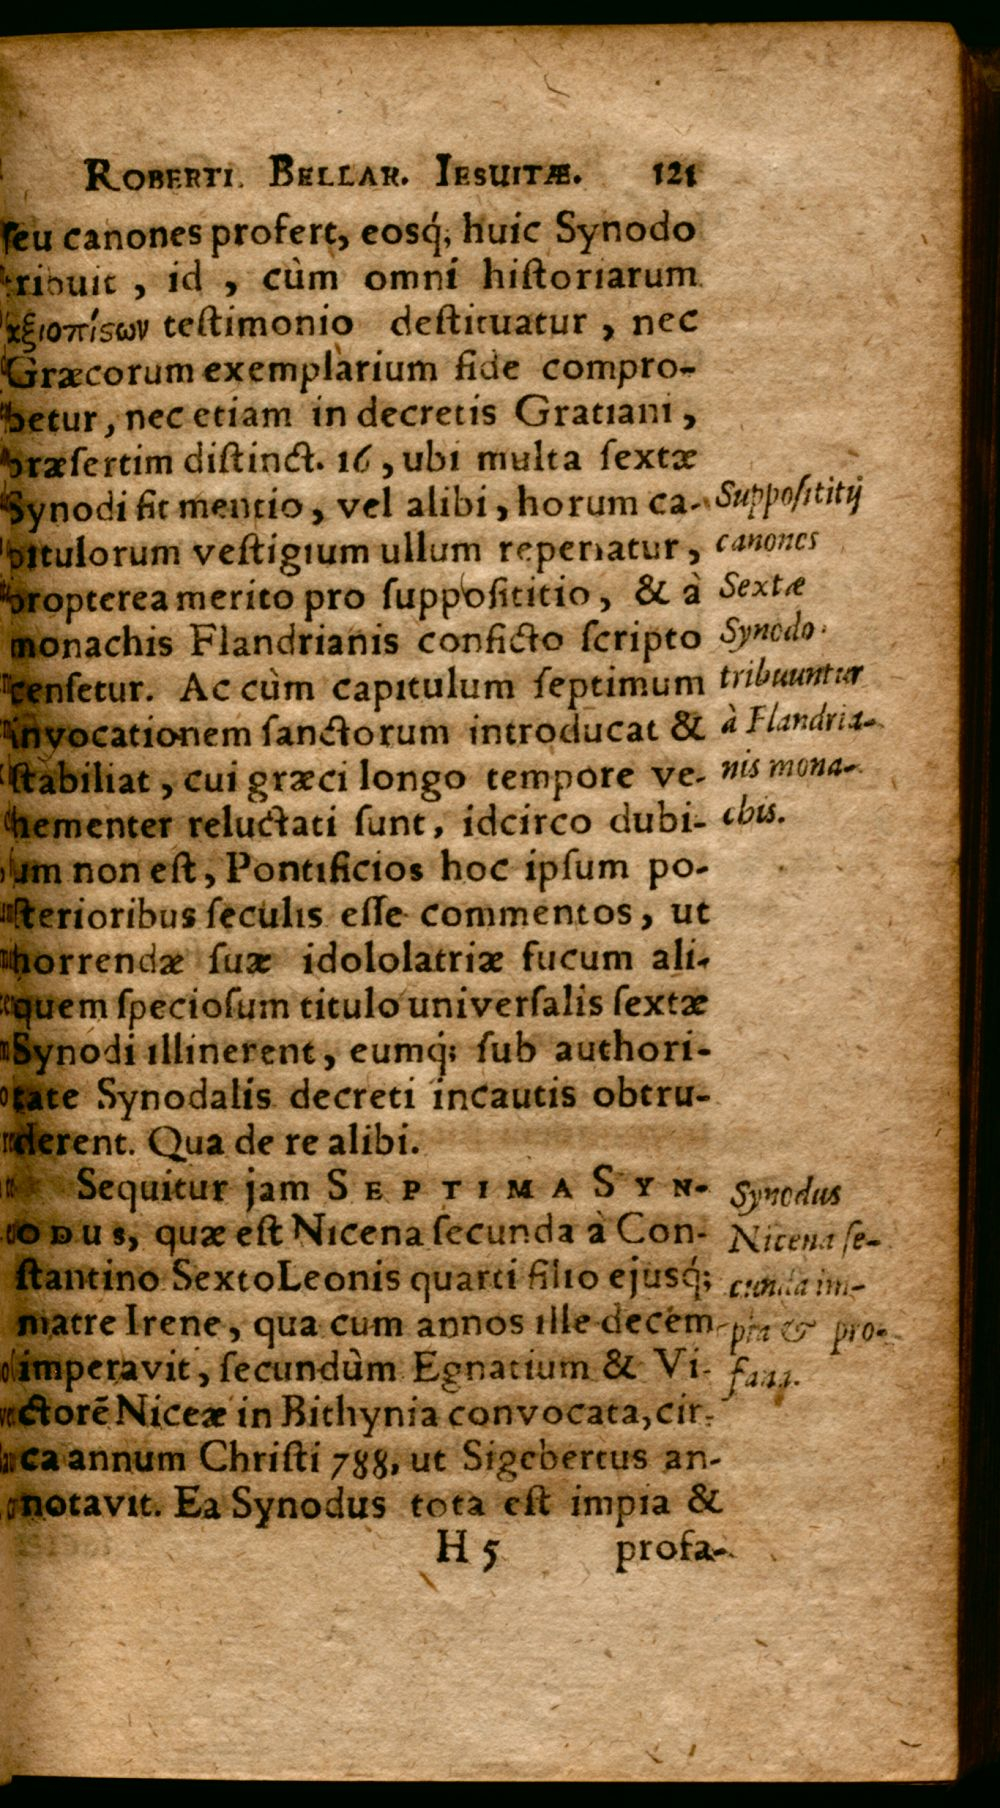 ROBERTI. BELLAR. IESUITÆ. 121
ſeu canones profert, eosq́; huic Synodo
tribuit, id, cùm omni hiſtoriarum
ἀξιοπίϛων teſtimonio deſtituatur, nec
Græcorum exemplarium fide compro-
betur, nec etiam in decretis Gratiani,
præſertim diſtinct. 16, ubi multa ſextæ
Synodi fit mentio, vel alibi, horum ca-
pitulorum veſtigium ullum reperiatur,
propterea merito pro ſuppoſititio, & à
monachis Flandrianis conficto ſcripto
cenſetur. Ac cùm capitulum ſeptimum
invocationem ſanctorum introducat &
ſtabiliat, cui græci longo tempore ve-
hementer reluctati ſunt, idcirco dubi-
um non eſt, Pontificios hoc ipſum po-
ſterioribus ſeculis eſſe commentos, ut
horrendæ ſuæ idololatriæ fucum ali-
quem ſpecioſum titulo univerſalis ſextæ
Synodi illinerent, eumq́; ſub authori-
tate Synodalis decreti incautis obtru-
derent. Qua de re alibi.
Suppoſititij
canones
Sextæ
Synodo
tribuuntur
à Flandria-
nis mona-
chis.
Sequitur jam SEPTIMA SYN-
ODUS, quæ eſt Nicena ſecunda à Con-
ſtantino Sexto Leonis quarti filio ejusq́;
matre Irene, qua cum annos ille decem
imperavit, ſecundùm Egnatium & Vi-
ctorē Niceæ in Bithynia convocata, cir-
ca annum Chriſti 788, ut Sigebertus an-
notavit. Ea Synodus tota eſt impia &
Synodus
Nicena ſe-
cunda im-
pia & pro-
fana.
H 5 profa-